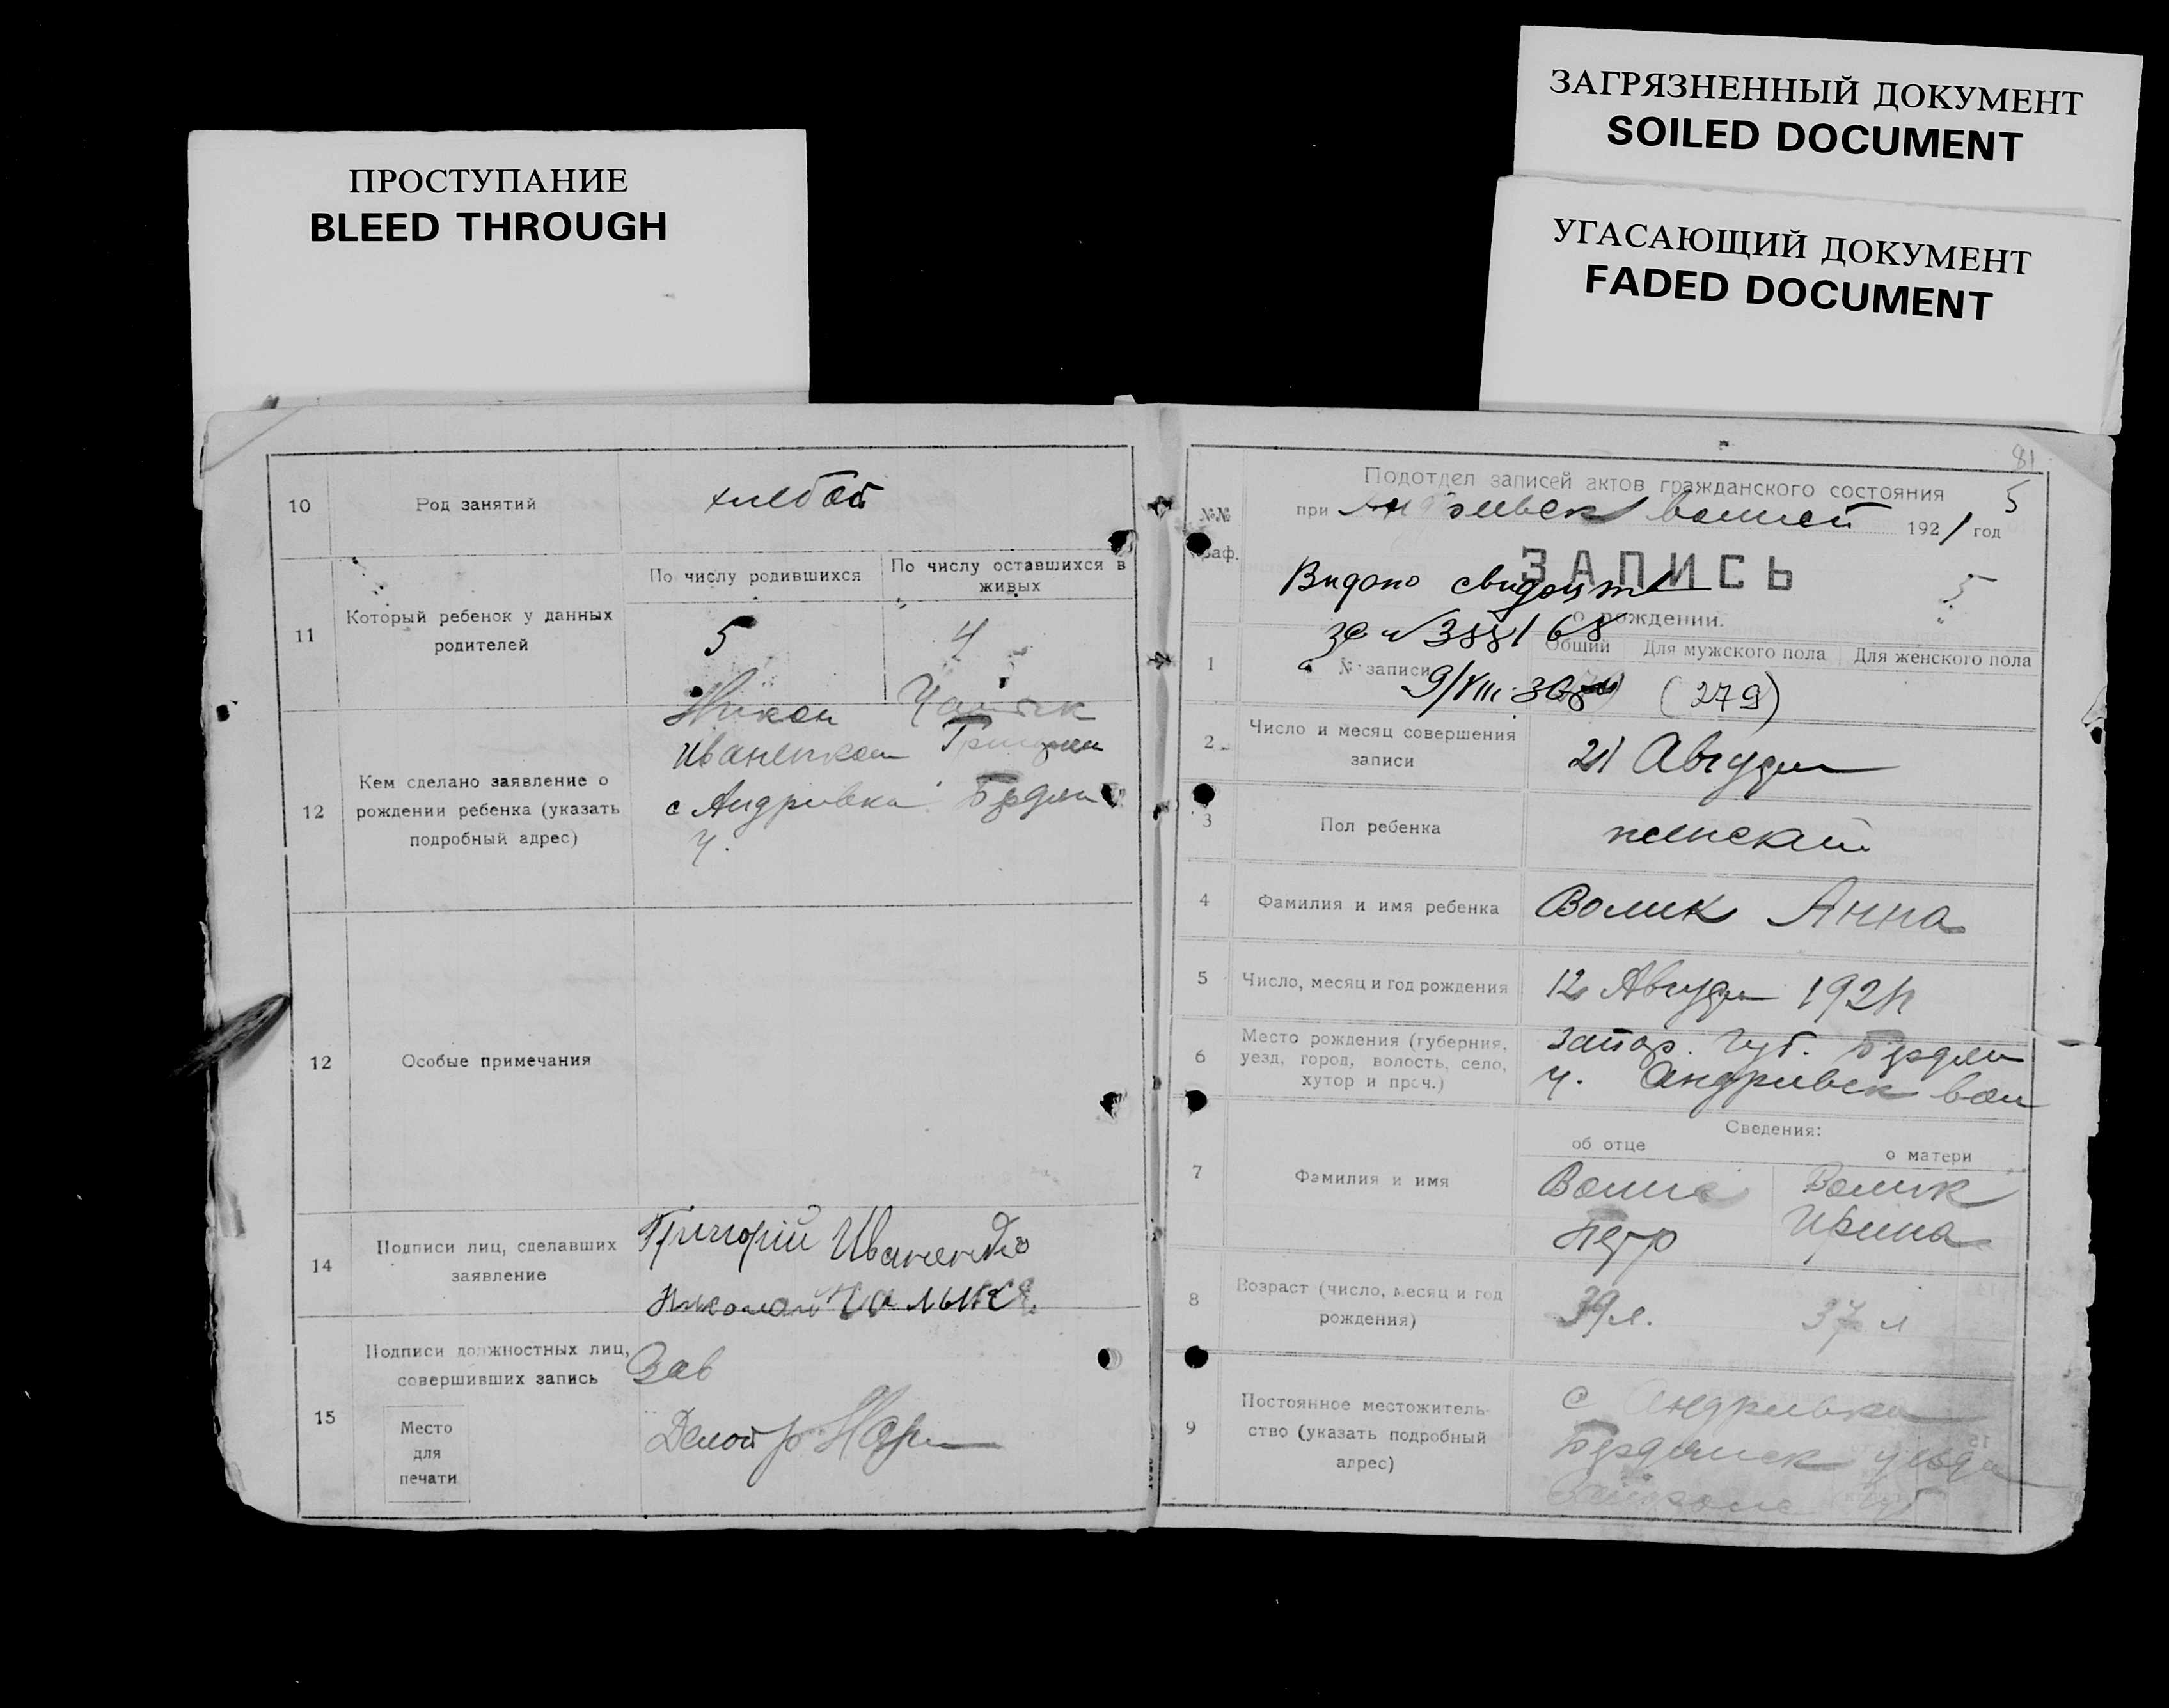 ПРОСТУПАНИЕ
BLEED THROUGH
ЗАГРЯЗНЕННЫЙ ДОКУМЕНТ
SOILED DOCUMENT
УГАСАЮЩИЙ ДОКУМЕНТ
FADED DOCUMENT
10 Род занятий хлебоп
11 Который ребенок у данных родителей
По числу родившихся
По числу оставшихся в живых
5 4
12 Кем сделано заявление о рождении ребенка (указать подробный адрес)
Иваненком
с Андривка Бердян
у.
12 Особые примечания
14 Подписи лиц, сделавших заявление
Григорій Иваненко
Николай
15 Подписи должностных лиц, совершивших запись
Зав
Место
для
печати
81
Подотдел записей актов гражданского состояния
5
№№
граф.
при 1921 год
ЗАПИСЬ
о рождении.
5
Видано свидоцт
за № 388168
9/VIII
1 № записи
Общий Для мужского пола Для женского пола
(279)
2 Число и месяц совершения записи 21 Августа
3 Пол ребенка женский
4 Фамилия и имя ребенка Волик Анна
5 Число, месяц и год рождения 12 Августа 1921
6 Место рождения (губерния, уезд, город, волость, село, хутор и проч.)
Запор. Губ. Бердян
у. Андривск вол
Сведения:
об отце о матери
7 Фамилия и имя
Волик Волик
Петр Ирина
8 Возраст (число, месяц и год рождения) 39 л. 37 л
9 Постоянное местожительство (указать подробный адрес)
с Андривка
Бердянск уезда
губ